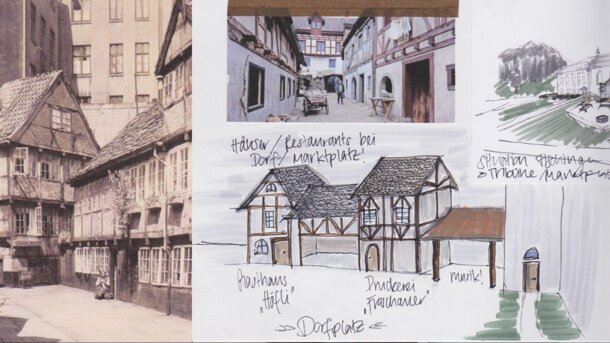 Häuser/Restaurants bei
Dorf/Marktplatz!
Situation Fischingen
Tribüne
Gasthaus
"Höfli"
Druckerei
"Froschauer"
musik!
>> Dorfplatz <<